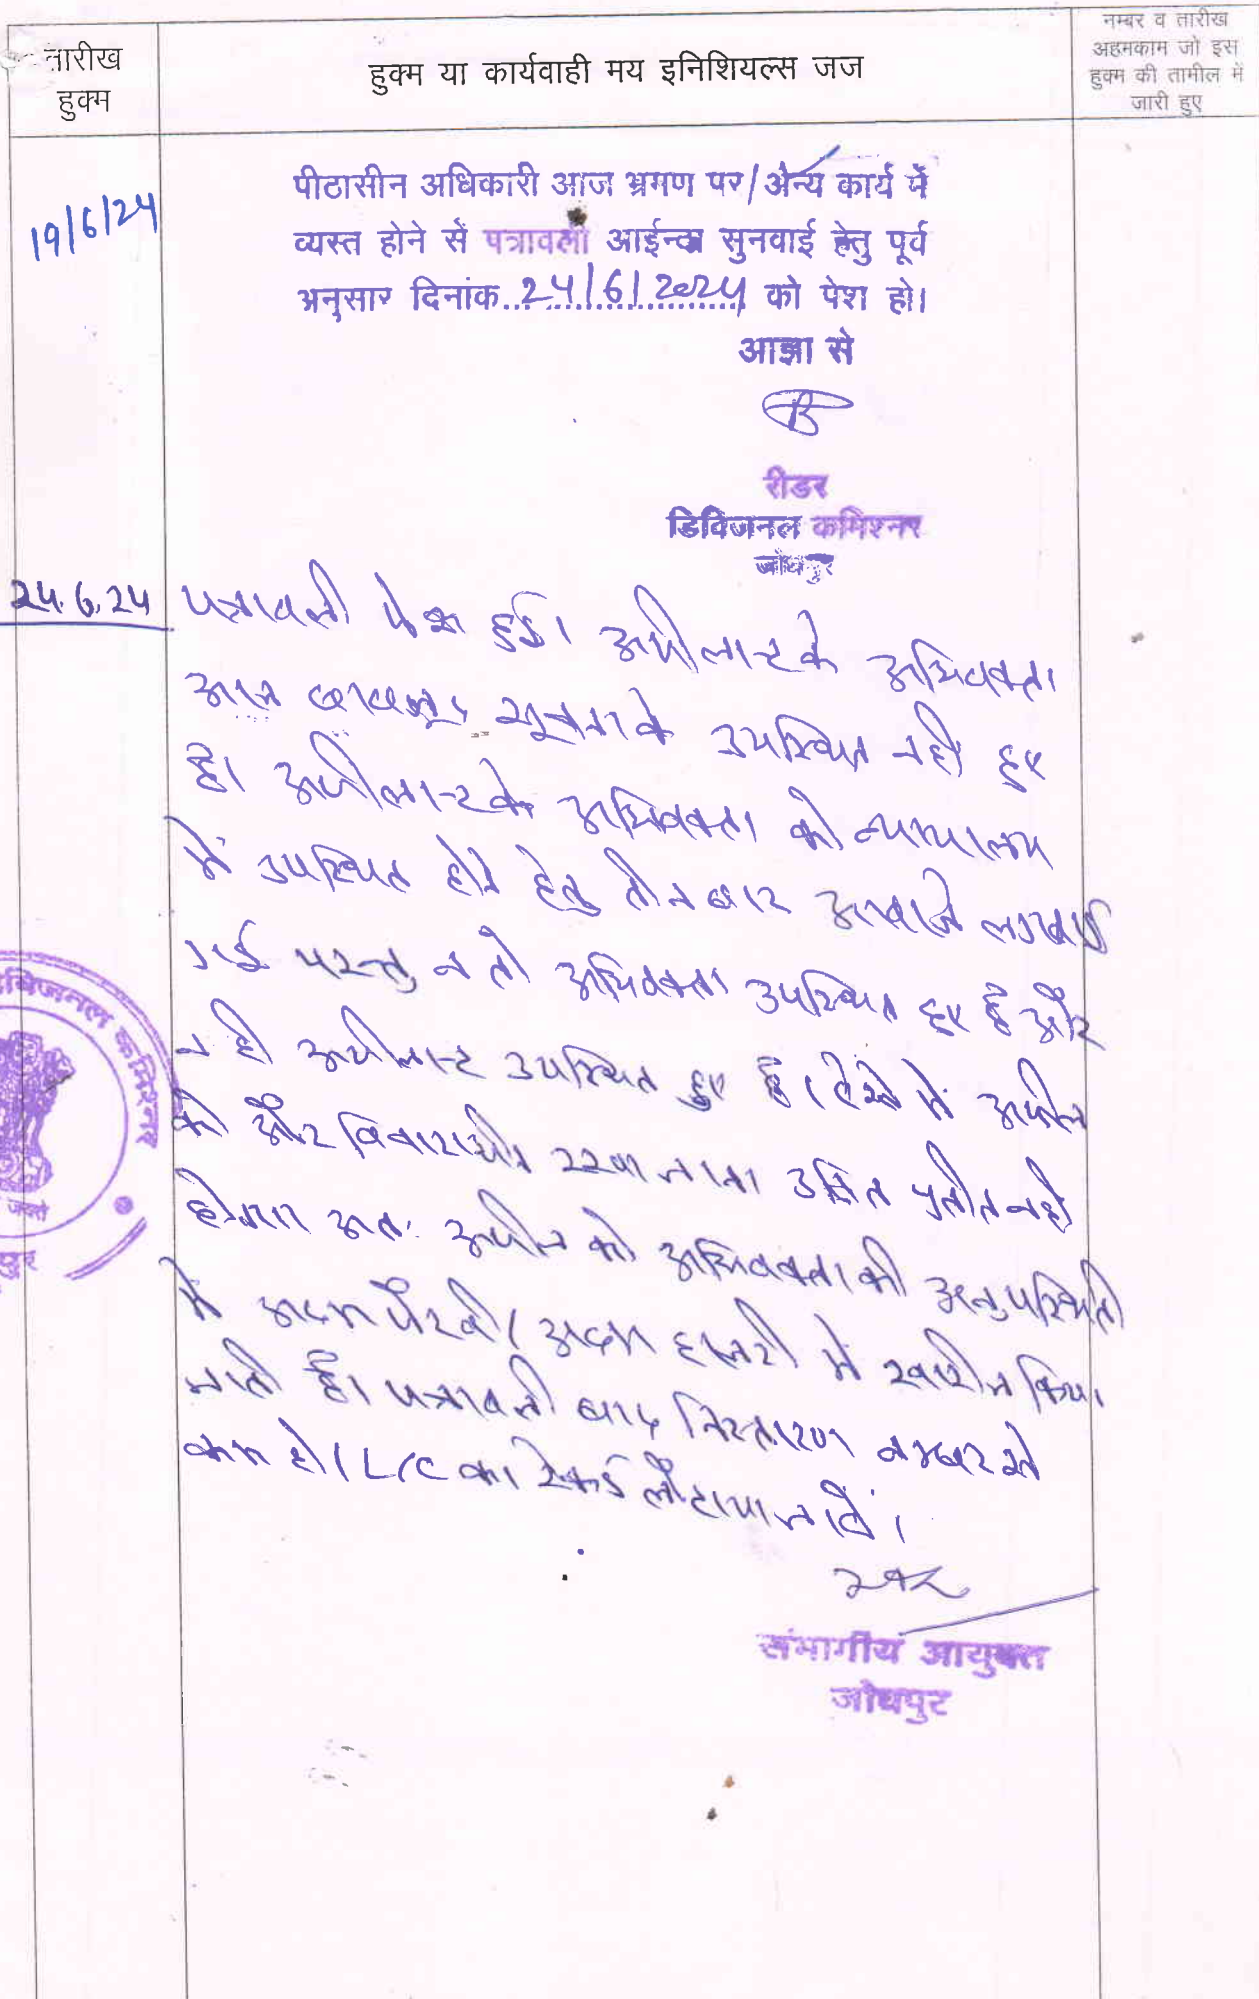 तारीख
हुक्म
हुक्म या कार्यवाही मय इनिशियल्स जज
नम्बर व तारीख
अहमकाम जो इस
हुक्म की तामील में
जारी हुए
19/6/24
पीठासीन अधिकारी आज भ्रमण पर/अन्य कार्य में
व्यस्त होने से पत्रावली आईन्दा सुनवाई हेतु पूर्व
अनुसार दिनांक 24/6/2024 को पेश हो।
आज्ञा से
रीडर
डिविजनल कमिश्नर
जोधपुर
24.6.24
पत्रावली पेश हुई। अपीलान्ट के अधिवक्ता
आज बावजूद सूचना के उपस्थित नही हुए
है। अपीलान्ट के अधिवक्ता को न्यायालय
में उपस्थित होने हेतु तीन बार आवाजे लगवाई
गई परन्तु न तो अधिवक्ता उपस्थित हुए है और
न ही अपीलान्ट उपस्थित हुए है। ऐसे में अपील
को और विचाराधीन रखा जाना उचित प्रतीत नही
होता अतः अपील को अधिवक्ता की अनुपस्थिती
में अदम पैरवी/अदम हाजरी में खारीज किया
जाती है। पत्रावली बाद निस्तारण नम्बर से
कम हो। L/C का रेकर्ड लौटाया जावें।
संभागीय आयुक्त
जोधपुर
डिविजनल कमिश्नर